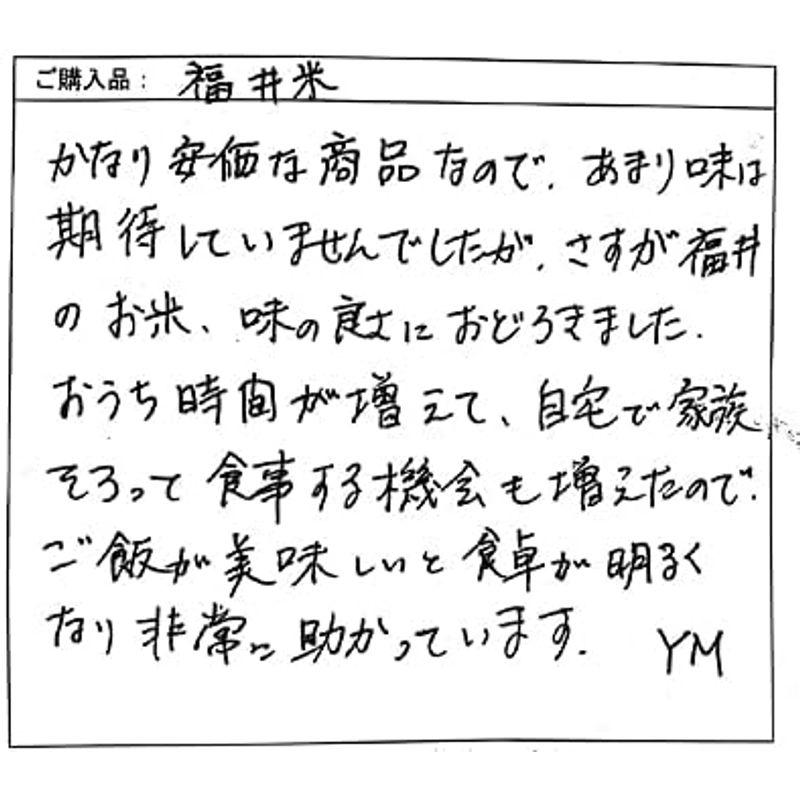 ご購入品: 福井米
かなり安価な商品なので、あまり味は
期待していませんでしたが、さすが福井
のお米、味の良さにおどろきました.
おうち時間が増えて、自宅で家族
そろって食事する機会も増えたので、
ご飯が美味しいと食卓が明るく
なり非常に助かっています.
YM